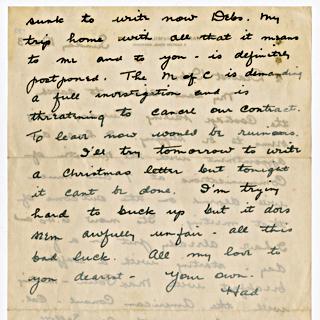 sunk to write now Debs. My
trip home with all that it means
to me and to you - is definitely
postponed. The M of C is demanding
a full investigation and is
threatening to cancel our contract.
To leave now would be ruinous.
I'll try tomorrow to write
a Christmas letter but tonight
it cant be done. I'm trying
hard to buck up but it does
seem awfully unfair - all this
bad luck. All my love to
you dearest - Your own -
Had